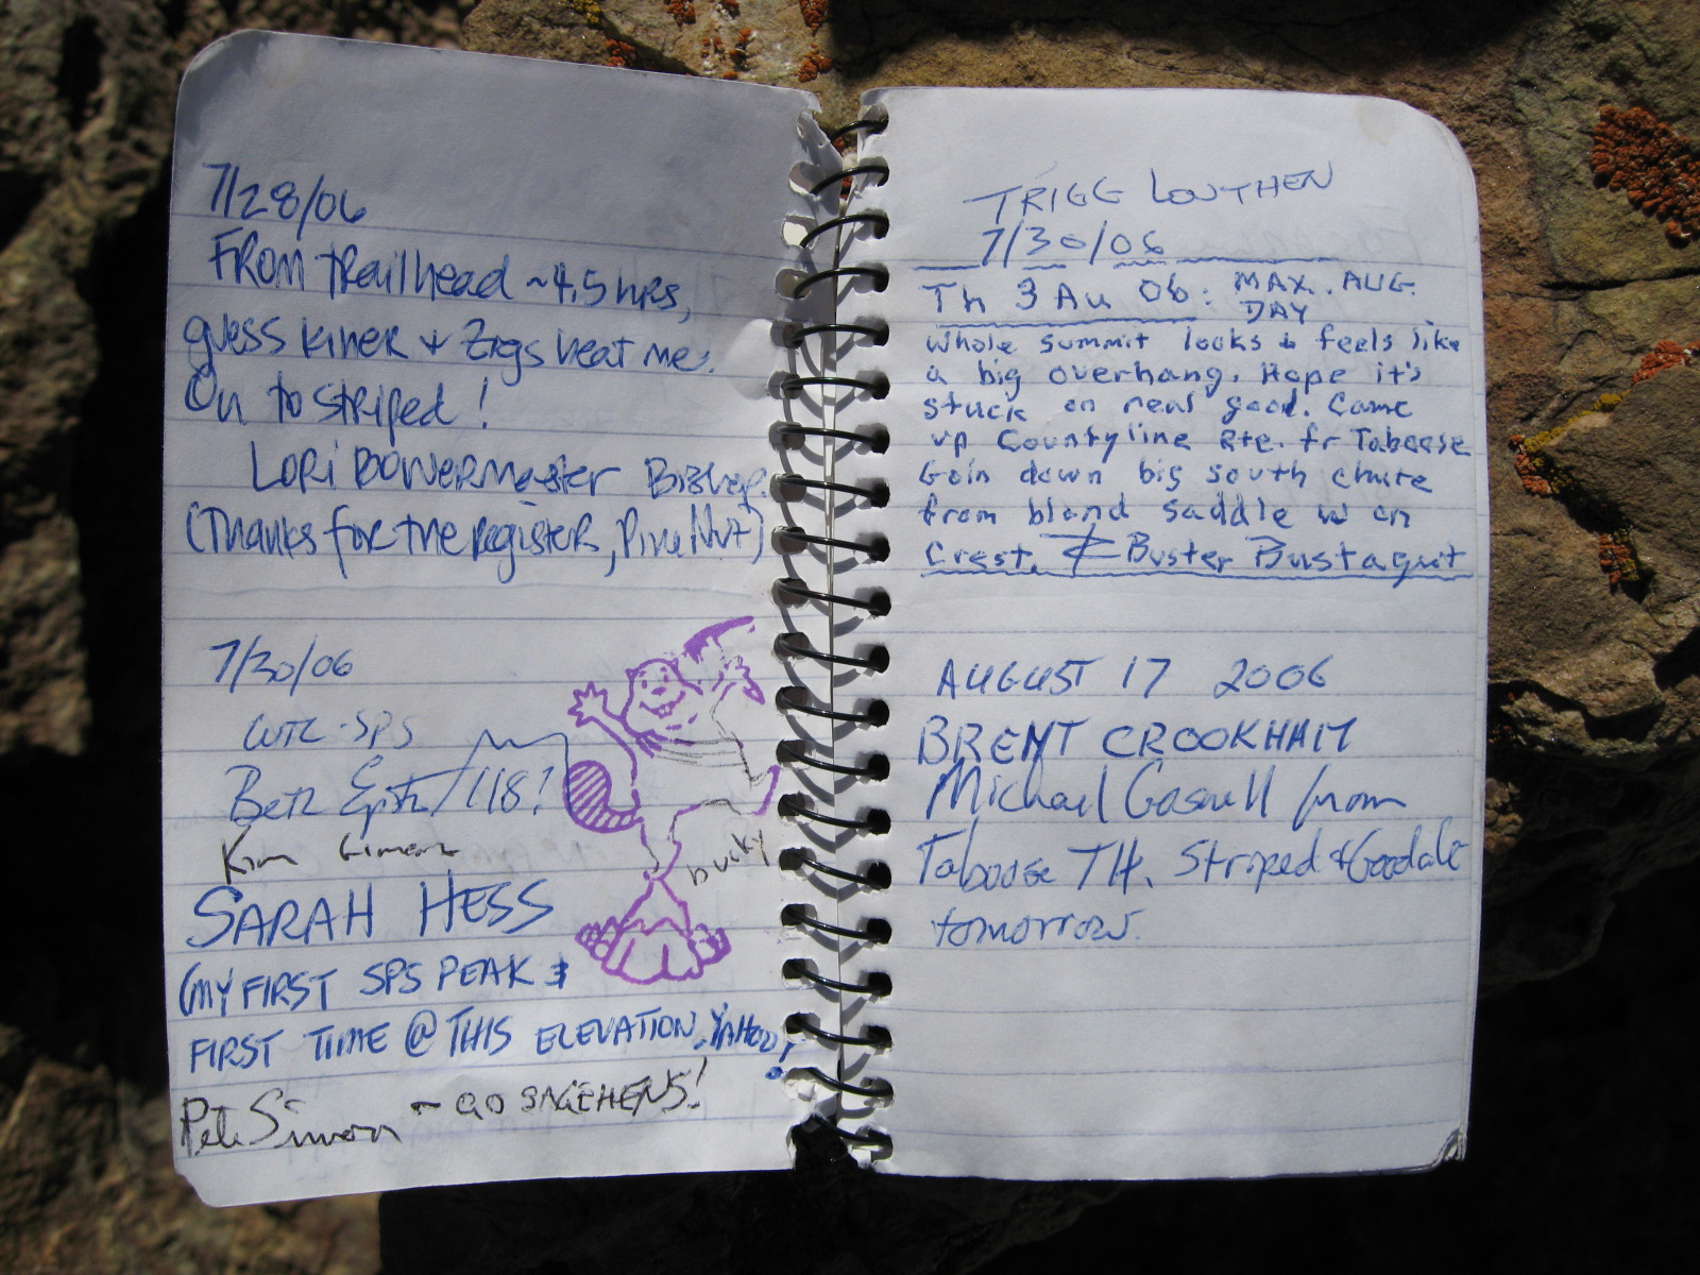 7/28/06
FROM trailhead ~4.5 hrs,
guess Kiner + Zigs beat me.
On to striped!
LORi BOWERMaster Bishop.
(Thanks for the register, Pine Nut)
7/30/06
WTC-SPS
Beth /118?
Kim
bucky
SARAH HESS
(MY FIRST SPS PEAK &
FIRST TIME @ THIS ELEVATION, YAHOO!
Pete Simon ~ GO SAGEHENS!
TRIGG LOUTHEN
7/30/06
Th 3 Au 06: MAX. AUG.
DAY
Whole summit looks & feels like
a big overhang. Hope it's
stuck on real good. Came
up Countyline Rte. fr Taboose
Goin down big south chute
from blond saddle w on
Crest. Buster Bustagut
AUGUST 17 2006
BRENT CROOKHAM
Michael Gaswell from
Taboose TH. Striped & Goodale
tomorrow.